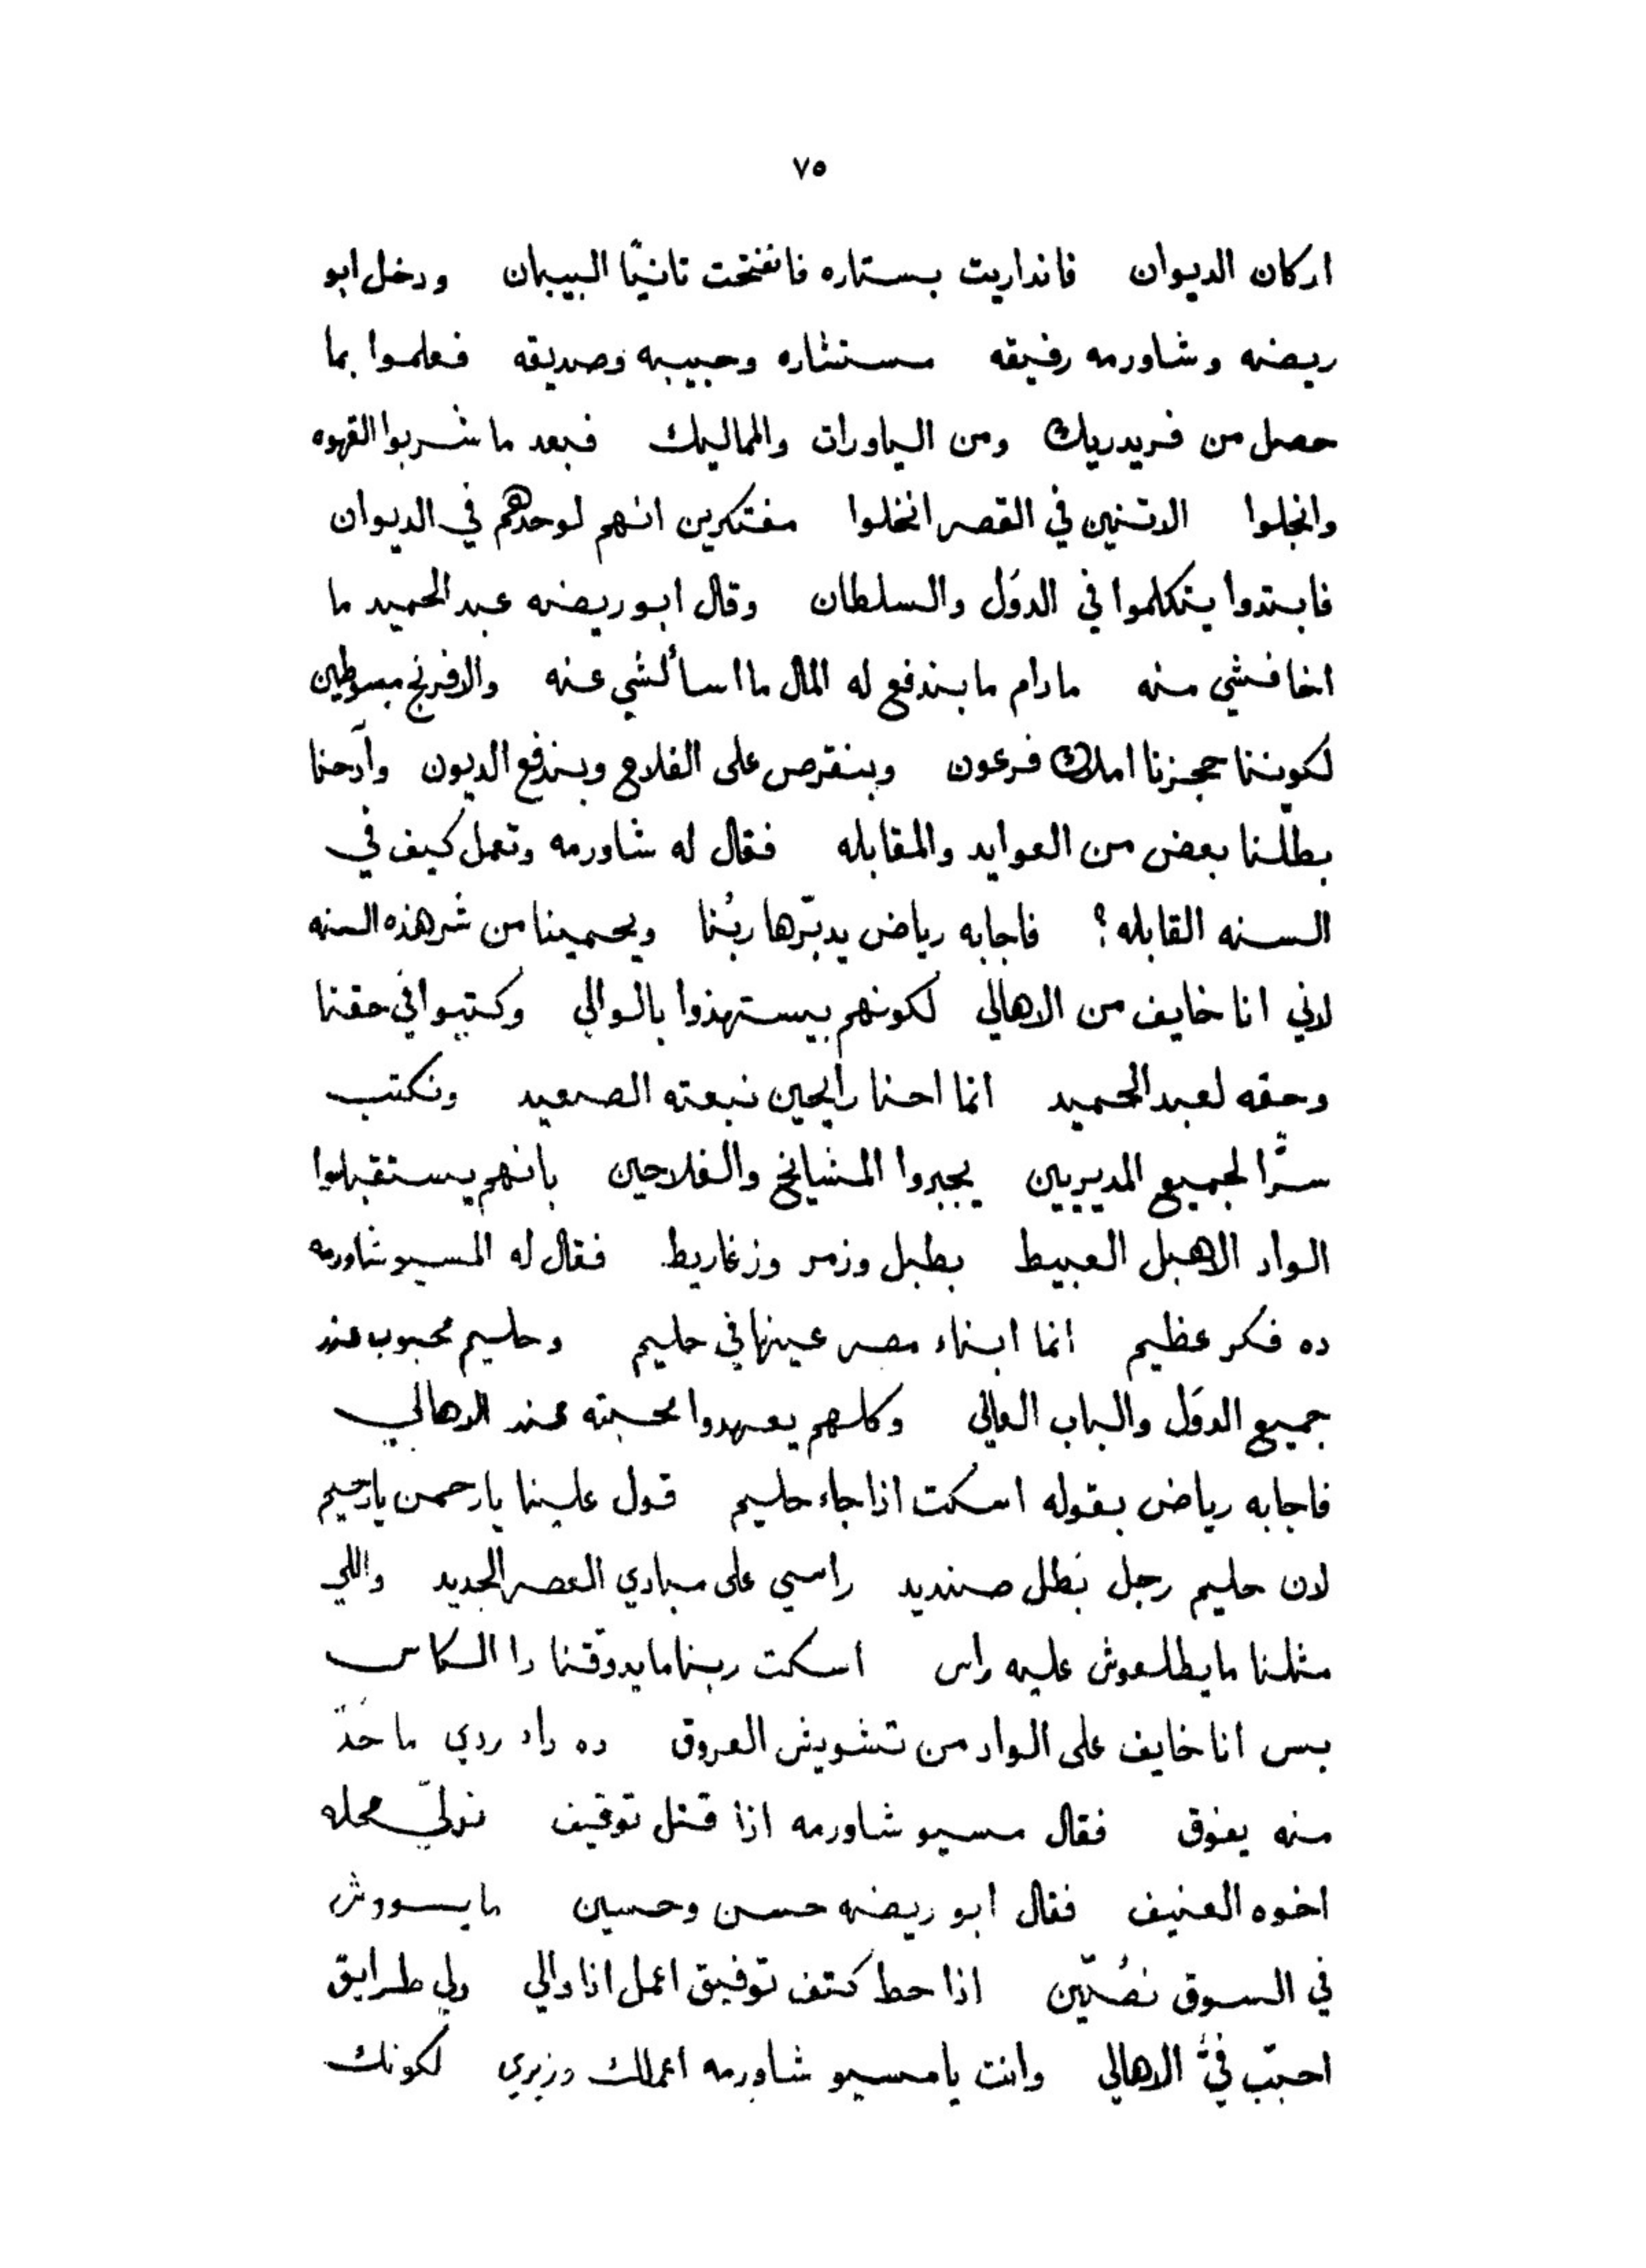 ٧٥
اركان الديوان فانداريت بستاره فانفتحت تانيًا البيبان ودخل ابو
ريضه وشاورمه رفيقه مستشاره وحبيبه وصديقه فعلموا بما
حصل من فريدريك ومن الياورات والمماليك فبعد ما شربوا القهوه
وانجلوا الاتنين في القصر انخلوا مفتكرين انهم لوحدهم في الديوان
فابتدوا يتكلموا في الدوَل والسلطان وقال ابو ريضه عبد الحميد ما
اخافشي منه مادام ما بندفع له المال ما اسألشي عنه والافرنج مبسوطين
لكوننا حجزنا املاك فرعون وبنقرص على الفلاح وبندفع الديون وآدحنا
بطّلنا بعض من العوايد والمقابله فقال له شاورمه وتعمل كيف في
السنه القابله؟ فاجابه رياض يدبّرها ربُنا ويحمينا من شر هذه السنه
لاني انا خايف من الاهالي لكونهم بيستهذوا بالوالي وكتبوا في حقنا
وحقه لعبد الحميد انما احنا رايحين نبعته الصعيد ونكتب
سرًّا لجميع المديريين يجبروا المشايخ والفلاحين بانهم يستقبلوا
الواد الاهبل العبيط بطبل وزمر وزغاريط فقال له المسيو شاورمه
ده فكر عظيم انما ابناء مصر عينها في حليم وحليم محبوب عند
جميع الدوَل والباب العالي وكلهم يعهدوا محبته عند الاهالي
فاجابه رياض بقوله اسكت اذا جاء حليم قول علينا يا رحمن يا رحيم
لان حليم رجل بَطل صنديد راسي على مبادي العصر الجديد واللي
مثلنا ما يطلعوش عليه راس اسكت ربنا ما يدوّقنا دا الكاس
بس انا خايف على الواد من تشويش العروق ده داء ردي ما حَدّ
منه يفوق فقال مسيو شاورمه اذا قتل توقيف نولّي محله
اخوه العنيف فقال ابو ريضه حسن وحسين ما يسووش
في السوق نصُّين اذا حط كتف توفيق اعمل انا والي ولي طرايق
احبّب فيَّ الاهالي وانت يا مسيو شاورمه اعملك وزيري لكونك